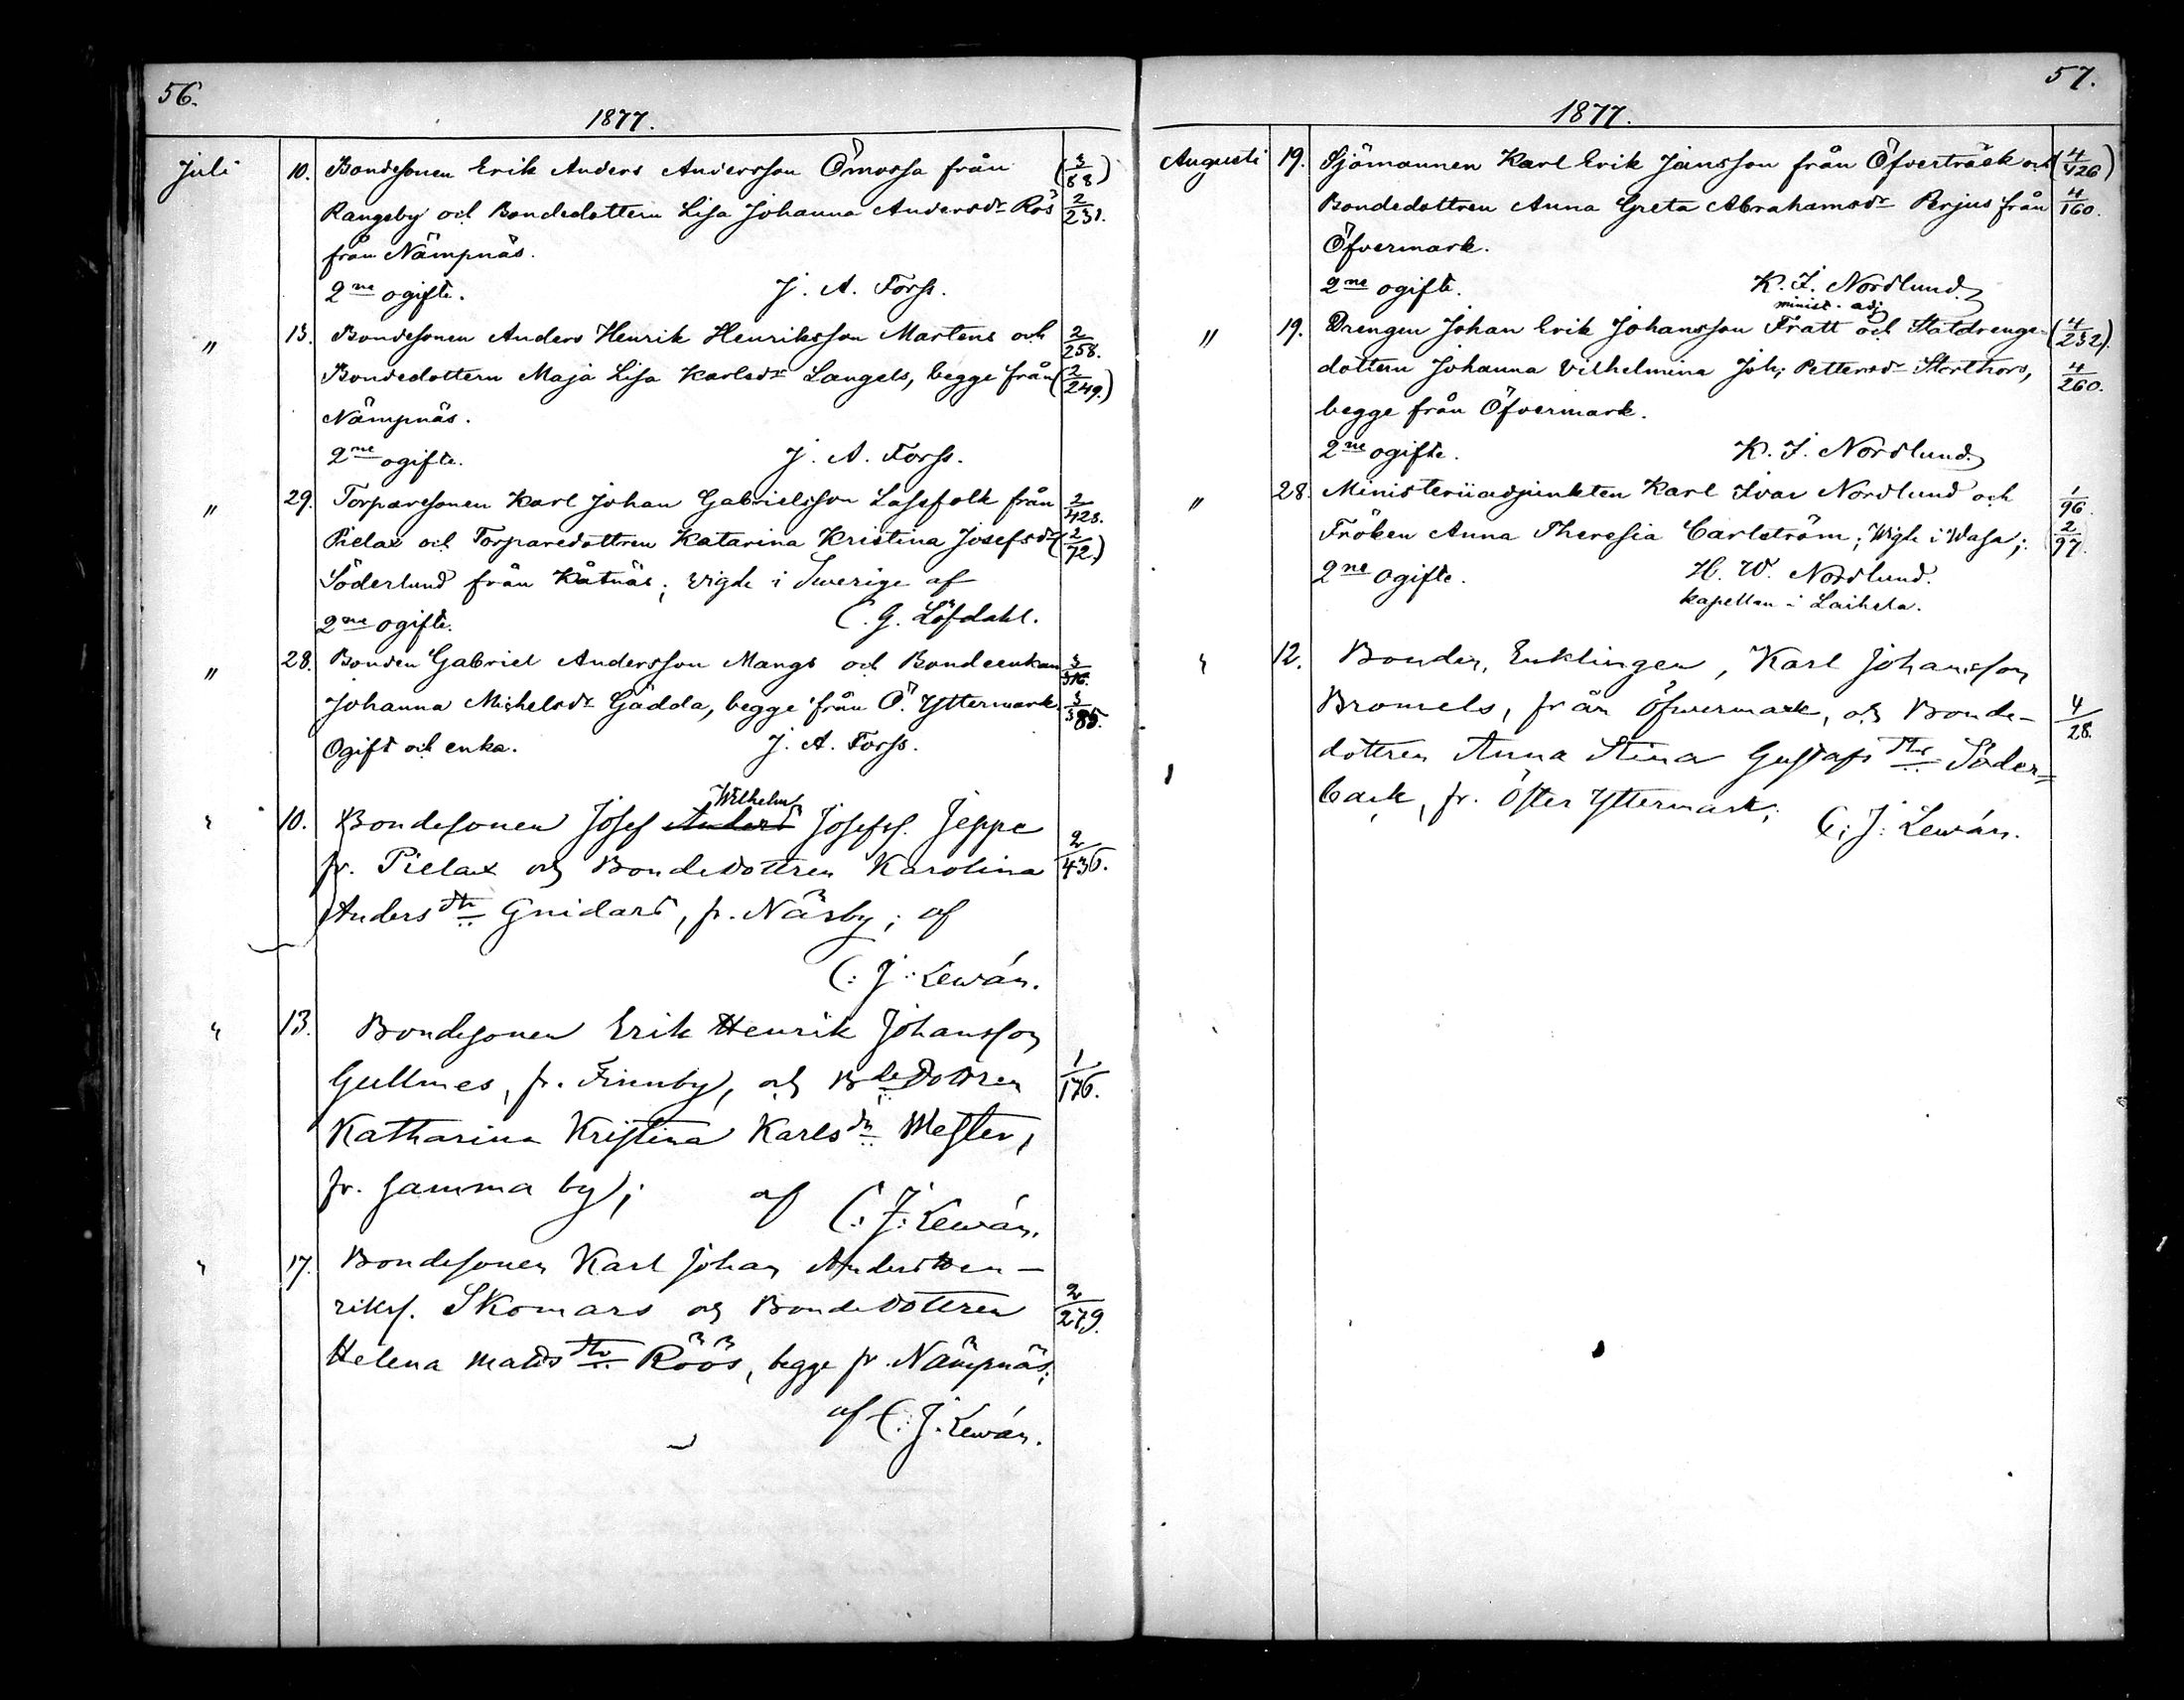 56.
1877.
Juli 10. Bondesonen Erik Anders Andersson Ömossa från (3/88)
Rangsby och Bondedottern Lisa Johanna Andersdr Rös 2/231.
från Nämpnäs.
2ne ogifte. J. A. Forss.
" 13. Bondesonen Anders Henrik Henriksson Martens och 2/258.
Bondedottern Maja Lisa Karlsdr Langels, begge från (2/249.)
Nämpnäs.
2ne ogifte. J. A. Forss.
" 29. Torparesonen Karl Johan Gabrielsson Lassfolk från 2/428.
Pielax och Torparedottren Katarina Kristina Josefsdr (2/72.)
Söderlund från Kåtnäs; vigde i Swerige af
2ne ogifte. C. G. Löfdahl.
" 28. Bonden Gabriel Andersson Mangs och Bondeenkan 3/316.
Johanna Michelsdr Gädda, begge från Ö. Yttermark 3/385.
Ogift och enka. J. A. Forss.
" 10. Bondesonen Josef Anders Wilhelm Josefss. Jeppe
fr. Pielax och Bondedottren Karolina 2/436.
Anders dtr Gnidars, fr. Näsby; af
C: J: Lewán.
" 13. Bondesonen Erik Henrik Johansson
Gullmes, fr. Finnby, och Bdedottren 1/176.
Katharina Kristina Karlsdtr Wester,
fr. samma by; af C: J: Lewán.
" 17. Bondesonen Karl Johan Anders Hen-
rikss. Skomars och Bondedottren 2/279.
Helena Matts dtr Röös, begge fr. Nämpnäs;
af C: J. Lewán.
57.
1877.
Augusti 19. Sjömannen Karl Erik Jansson från Öfverträsk och (4/426)
Bondedottren Anna Greta Abrahamsdr Perjus från 4/160.
Öfvermark.
2ne ogifte. K. I. Nordlund.
minist. adj
" 19. Drengen Johan Erik Johansson Fratt och Statdrenge- (4/232).
dottern Johanna Vilhelmina Joh: Pettersdr Storthors, 4/260.
begge från Öfvermark.
2ne ogifte. K. I. Nordlund.
" 28. Ministeriiadjunkten Karl Ivar Nordlund och 1/96.
Fröken Anna Theresia Carlström; Vigde i Wasa; 2/97.
2ne ogifte. H. W. Nordlund.
kapellan i Laihela.
" 12. Bonden, Enklingen, Karl Johansson
Bromels, från Öfvermark, och Bonde- 4/28.
dottren Anna Stina Gustafs dtr Söder-
back, fr. Öster Yttermark;
C: J: Lewán.